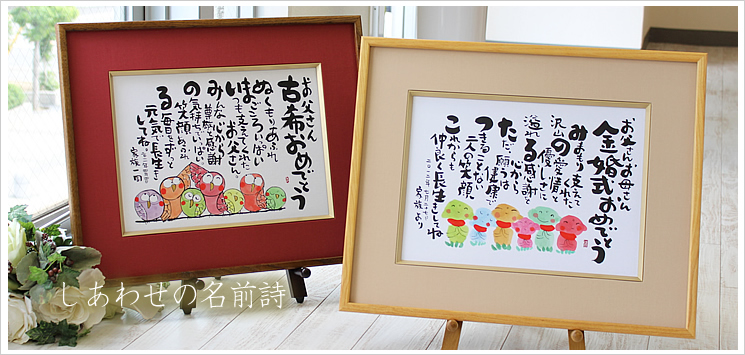 お父さん
古希おめでとう
ぬくもりあふれ
まごころいっぱい
いつも支えてくれた
お父さん。
みんな心から感謝
の気持ちでいっぱい
笑顔あふれ
る毎日をずっと
元気で長生き
してね。
家族一同
お父さんお母さん
金婚式おめでとう
みまもり支えて
くれた
沢山の愛情と
優しさに
溢れる感謝と
心から
ただ願う健康で
つきることない
二人の笑顔
これからも
仲良く長生きしてね
家族より
しあわせの名前詩